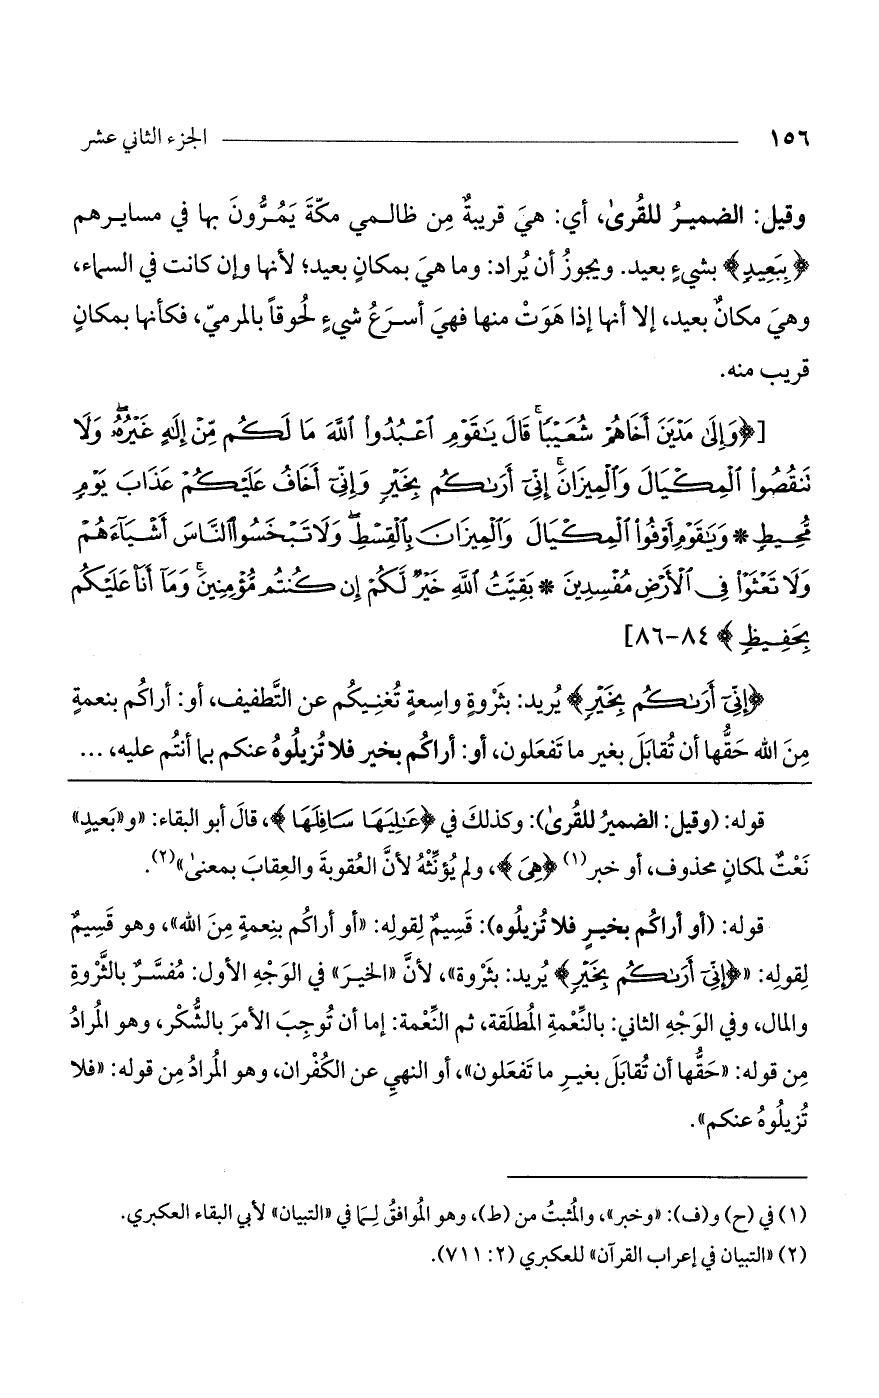 ١٥٦ الجزء الثاني عشر
وقيل: الضميرُ للقُرىٰ، أي: هيَ قريبةٌ مِن ظالمي مكّةَ يَمُرُّونَ بها في مسايرهم
﴿بِبَعِيدٍ﴾ بشيءٍ بعيد. ويجوزُ أن يُراد: وما هيَ بمكانٍ بعيد؛ لأنها وإن كانت في السماء،
وهيَ مكانٌ بعيد، إلا أنها إذا هَوَتْ منها فهيَ أسرَعُ شيءٍ لُحوقاً بالمرميّ، فكأنها بمكانٍ
قريب منه.
[﴿وَإِلَىٰ مَدْيَنَ أَخَاهُمْ شُعَيْبًا ۚ قَالَ يَٰقَوْمِ ٱعْبُدُوا۟ ٱللَّهَ مَا لَكُم مِّنْ إِلَٰهٍ غَيْرُهُۥ ۖ وَلَا
تَنقُصُوا۟ ٱلْمِكْيَالَ وَٱلْمِيزَانَ ۚ إِنِّىٓ أَرَىٰكُم بِخَيْرٍ وَإِنِّىٓ أَخَافُ عَلَيْكُمْ عَذَابَ يَوْمٍ
مُّحِيطٍ * وَيَٰقَوْمِ أَوْفُوا۟ ٱلْمِكْيَالَ وَٱلْمِيزَانَ بِٱلْقِسْطِ ۖ وَلَا تَبْخَسُوا۟ ٱلنَّاسَ أَشْيَآءَهُمْ
وَلَا تَعْثَوْا۟ فِى ٱلْأَرْضِ مُفْسِدِينَ * بَقِيَّتُ ٱللَّهِ خَيْرٌ لَّكُمْ إِن كُنتُم مُّؤْمِنِينَ ۚ وَمَآ أَنَا۠ عَلَيْكُم
بِحَفِيظٍ﴾ ٨٤-٨٦]
﴿إِنِّىٓ أَرَىٰكُم بِخَيْرٍ﴾ يُريد: بثَرْوةٍ واسِعةٍ تُغنِيكُم عن التَّطفيف، أو: أراكُم بنعمةٍ
مِنَ الله حَقُّها أن تُقابَلَ بغير ما تَفعَلون، أو: أراكُم بخير فلا تُزيلُوهُ عنكم بما أنتُم عليه، ...
قوله: (وقيل: الضميرُ للقُرىٰ): وكذلكَ في ﴿عَٰلِيَهَا سَافِلَهَا﴾، قالَ أبو البقاء: «و«بَعيدٍ»
نَعْتٌ لمكانٍ محذوف، أو خبر(١) ﴿هِىَ﴾، ولم يُؤنِّثْهُ لأنَّ العُقوبةَ والعِقابَ بمعنىٰ»(٢).
قوله: (أو أراكُم بخيرٍ فلا تُزيلُوه): قَسِيمٌ لِقولِه: «أو أراكُم بنِعمةٍ مِنَ الله»، وهو قَسِيمٌ
لِقولِه: «﴿إِنِّىٓ أَرَىٰكُم بِخَيْرٍ﴾ يُريد: بثَرْوة»، لأنَّ «الخيرَ» في الوَجْهِ الأول: مُفسَّرٌ بالثَّرْوةِ
والمال، وفي الوَجْهِ الثاني: بالنِّعْمةِ المُطلَقة، ثم النِّعْمة: إما أن تُوجِبَ الأمرَ بالشُّكْر، وهو المُرادُ
مِن قوله: «حَقُّها أن تُقابَلَ بغيرِ ما تَفعَلون»، أو النهيِ عن الكُفْران، وهو المُرادُ مِن قوله: «فلا
تُزيلُوهُ عنكم».
(١) في (ح) و(ف): «وخبر»، والمُثبتُ من (ط)، وهو المُوافقُ لِمَا في «التبيان» لأبي البقاء العكبري.
(٢) «التبيان في إعراب القرآن» للعكبري (٢: ٧١١).